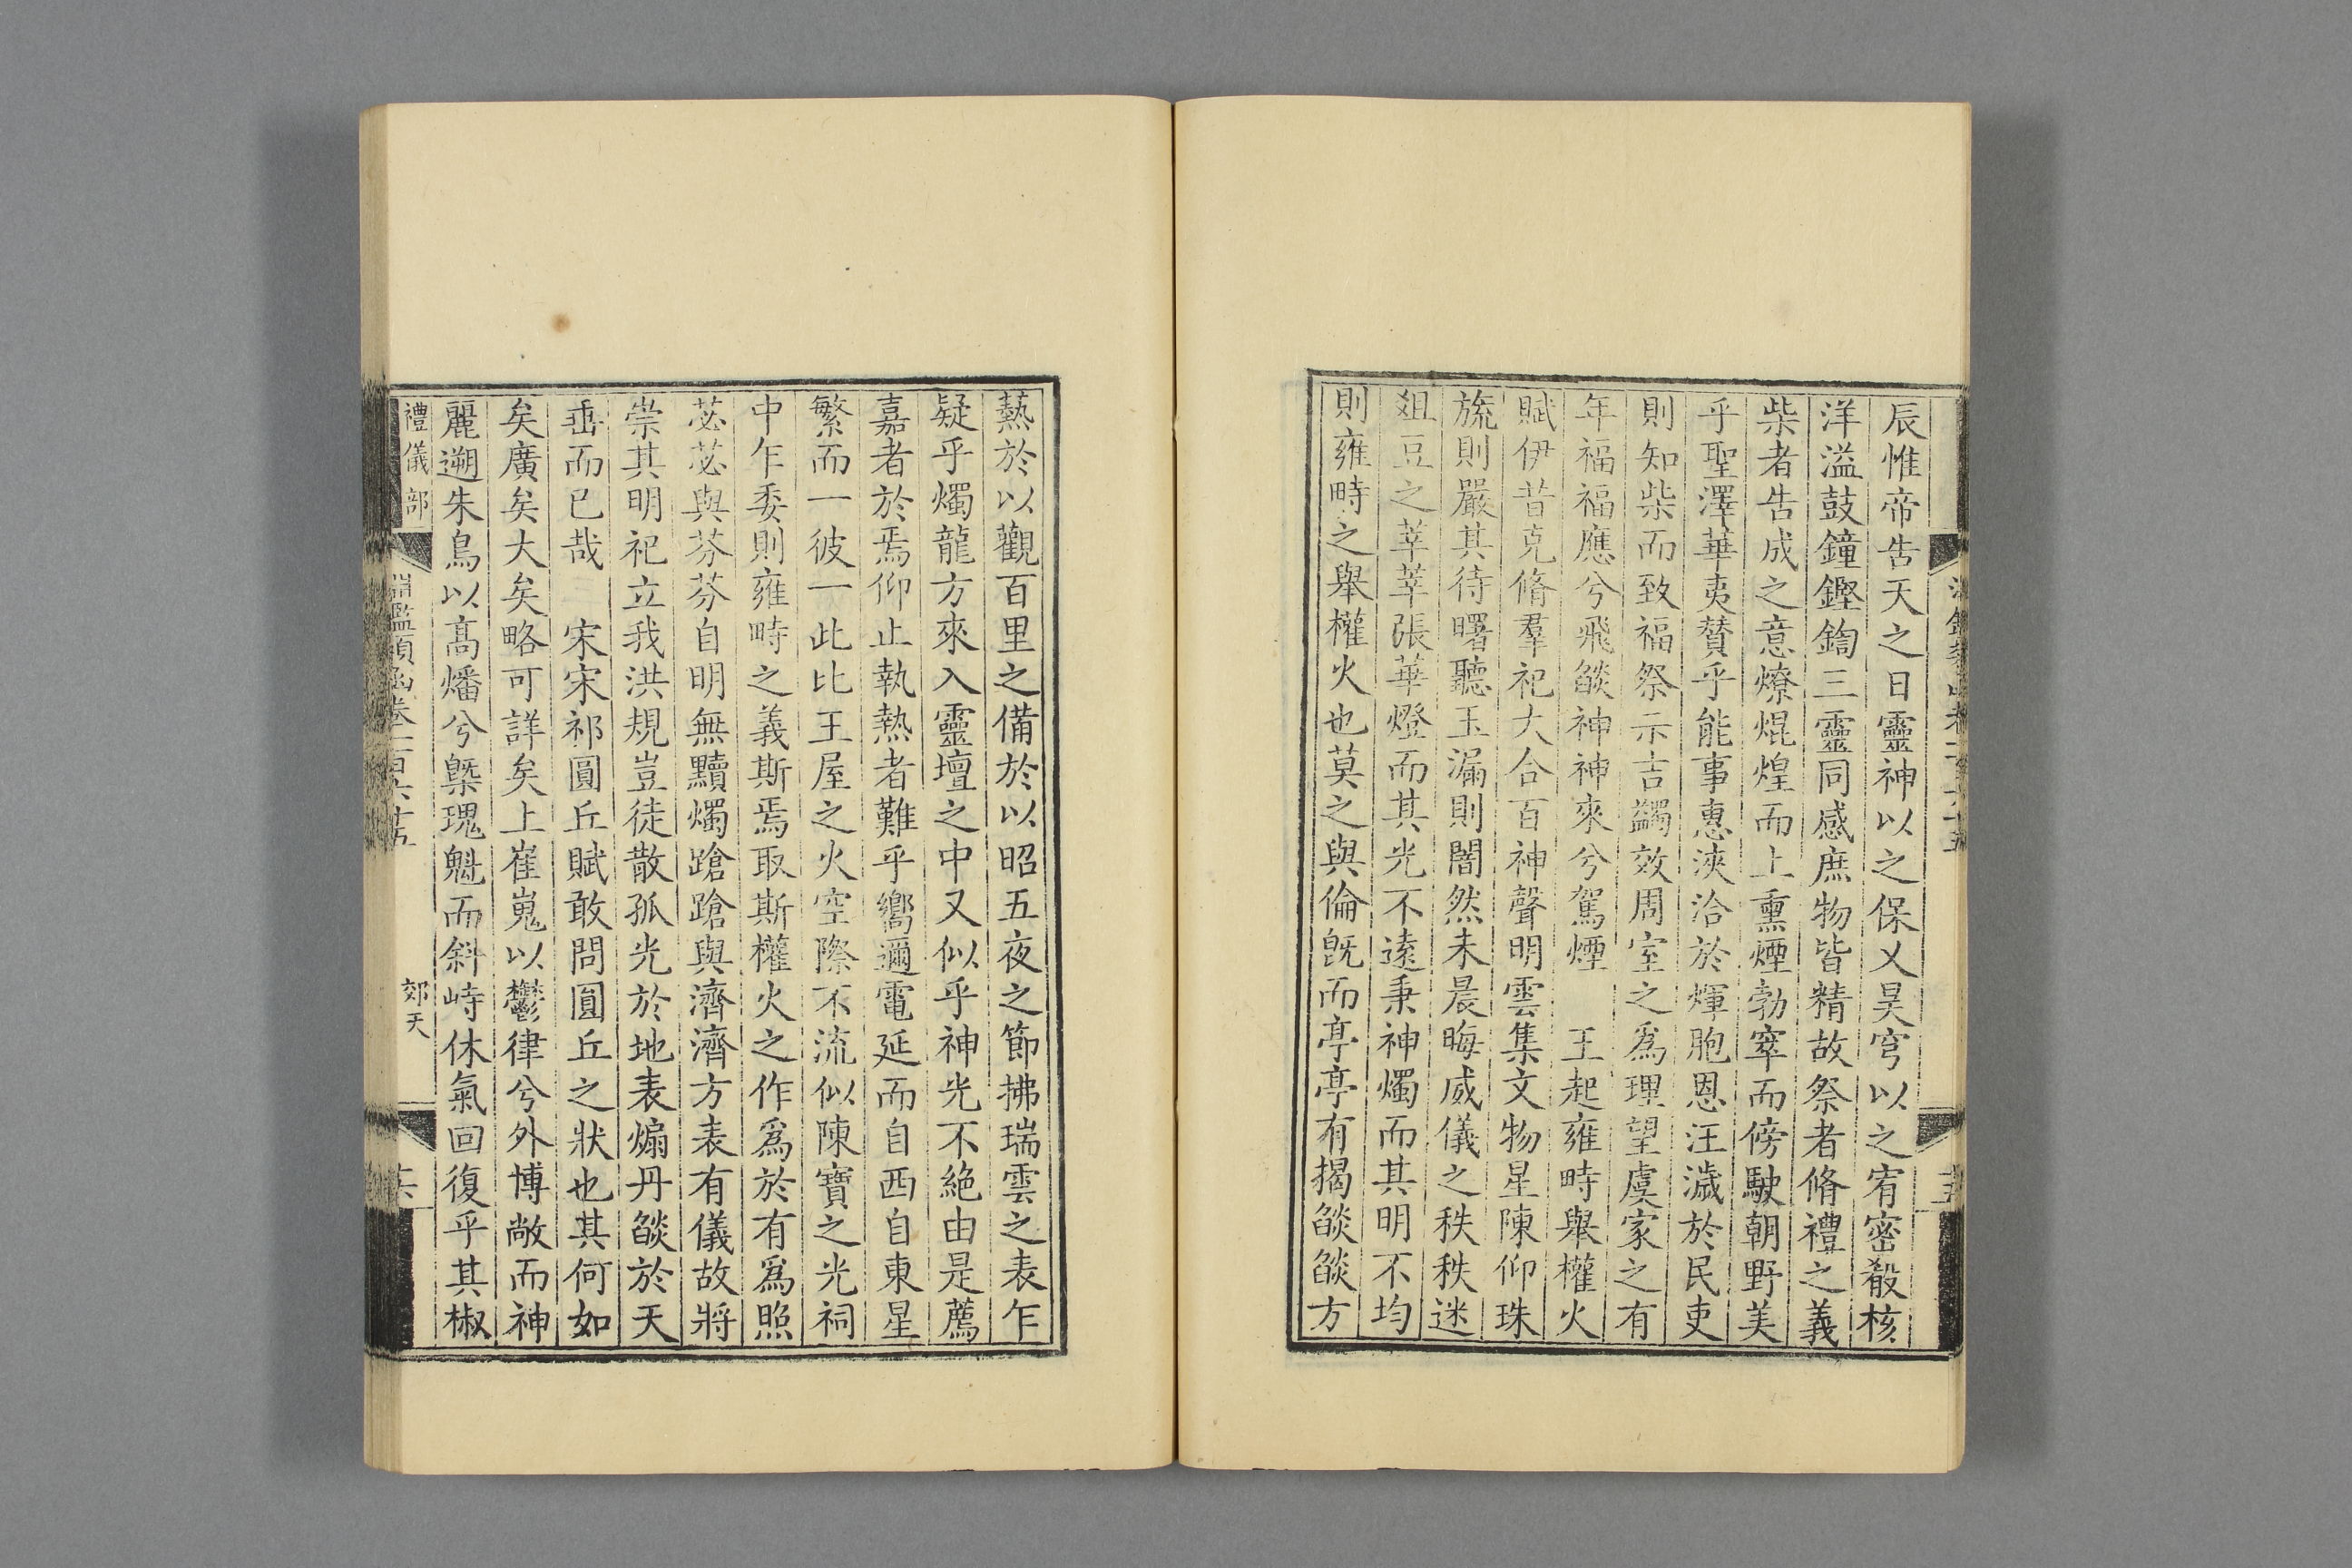 辰惟帝告天之日靈神以之保乂昊穹以之宥密殽核
洋溢鼓鐘鏗鍧三靈同感庶物皆精故祭者脩禮之義
柴者告成之意燎焜煌而上熏煙勃窣而傍駛朝野美
乎聖澤華夷贊乎能事惠浹洽於煇胞恩汪濊於民吏
則知柴而致福祭示吉蠲效周室之爲理望虞家之有
年福福應兮飛燄神神來兮駕煙　王起雍畤舉權火
賦伊昔克脩羣祀大合百神聲明雲集文物星陳仰珠
旒則嚴其待曙聽玉漏則闇然未晨晦威儀之秩秩迷
俎豆之莘莘張華燈而其光不遠秉神燭而其明不均
則雍畤之舉權火也莫之與倫旣而亭亭有揭燄燄方
熱於以觀百里之備於以昭五夜之節拂瑞雲之表乍
疑乎燭龍方來入靈壇之中又似乎神光不絶由是薦
嘉者於焉仰止執熱者難乎嚮邇電延而自西自東星
繁而一彼一此比王屋之火空際不流似陳寶之光祠
中乍委則雍畤之義斯焉取斯權火之作爲於有爲照
苾苾與芬芬自明無黷燭蹌蹌與濟濟方表有儀故將
崇其明祀立我洪規豈徒散孤光於地表煽丹燄於天
垂而已哉　宋宋祁圓丘賦敢問圓丘之狀也其何如
矣廣矣大矣略可詳矣上崔嵬以鬱律兮外博敞而神
麗遡朱鳥以高燔兮槩瑰魁而斜峙休氣回復乎其椒
禮儀部
淵鑑類函卷一百六十五
郊天
十六